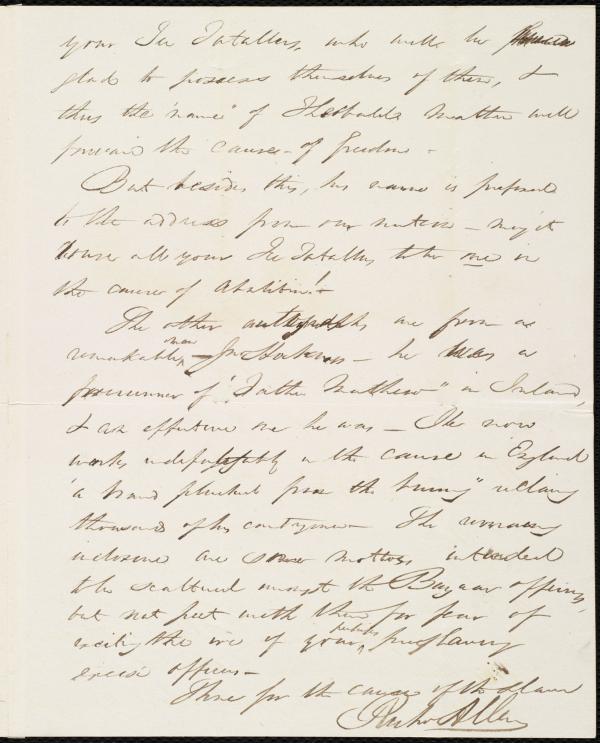 your Tee Totallers, who will be
glad to possess themselves of them, &
thus the "name" of Theobald Mathew will
forward the cause of freedom -
But besides this, his name is prefixed
to the address from our nation - may it
rouse all your Tee Totallers to be one in
the cause of Abolition! -
The other autographs are from a
remarkable man - Jno Hockings - he was a
forerunner of "Father Matthew" in Ireland,
& an effective one he was - He now
works indefatigably in the cause in England
"a brand plucked from the burning" reclaiming
thousands of his countrymen - The remaining
inclosure are some mottoes intended
to be scattered amongst the Bazaar offerings,
but not put with them for fear of
exciting the ire of your perhaps proslavery
excise officers -
Thine for the cause of the slave
Richd Allen